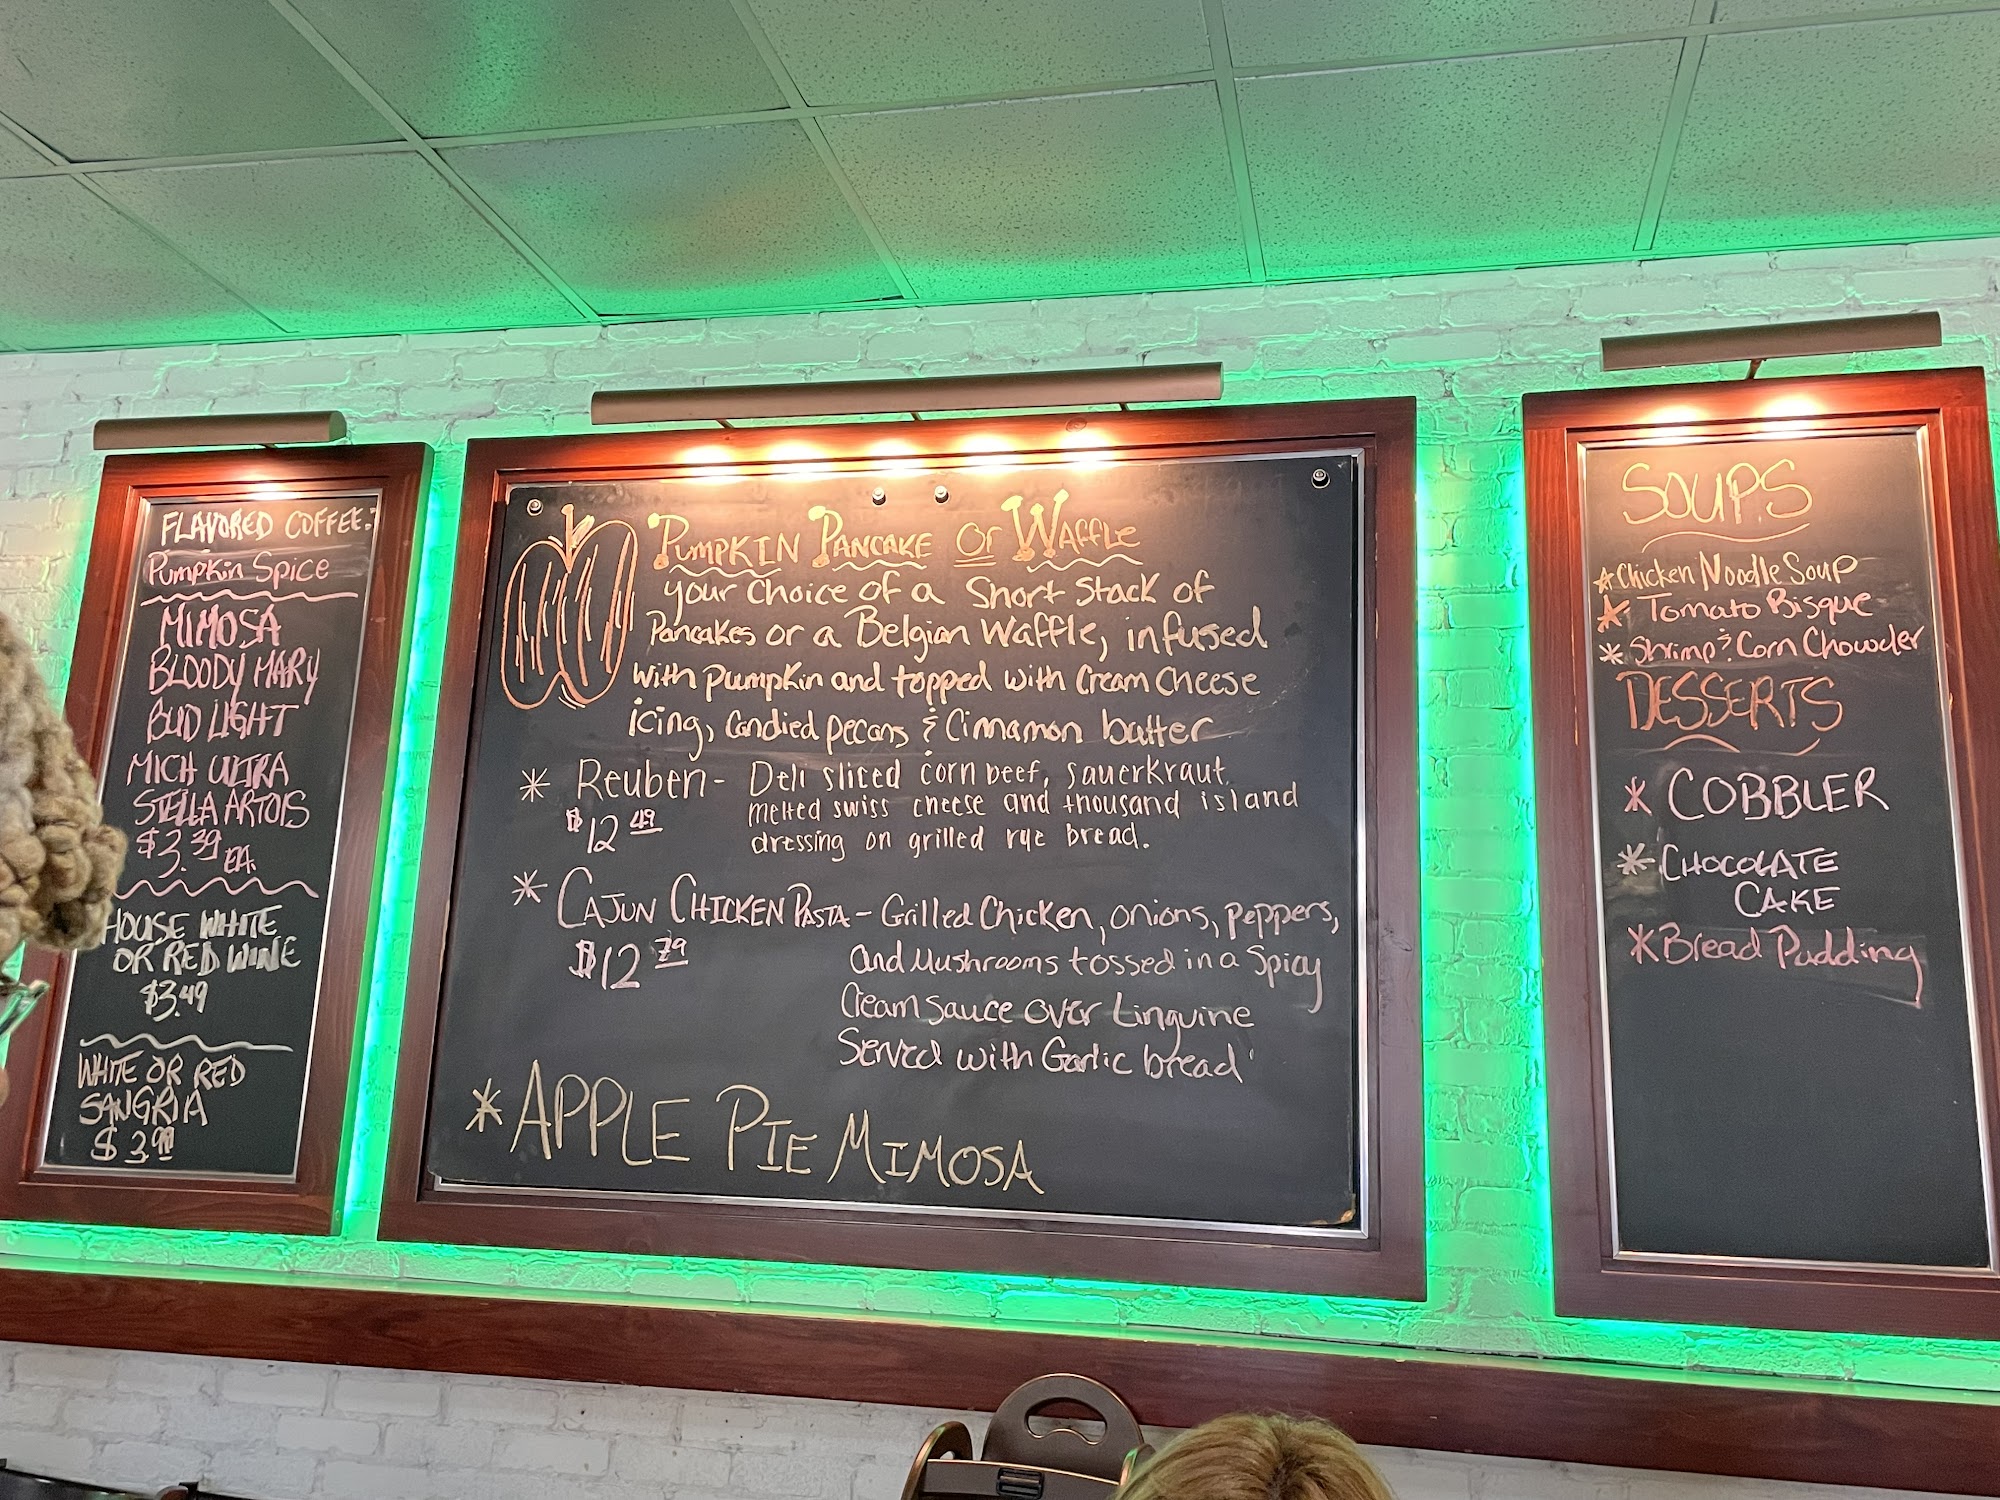 FLAVORED COFFEE:
Pumpkin Spice
MIMOSA
BLOODY MARY
BUD LIGHT
MICH ULTRA
STELLA ARTOIS
$3.39 EA.
HOUSE WHITE
OR RED WINE
$3.49
WHITE OR RED
SANGRIA
$3.99
PUMPKIN PANCAKE Or WAFFLE
your choice of a Short Stack of
Pancakes or a Belgian Waffle, infused
with pumpkin and topped with Cream Cheese
icing, Candied pecans & Cinnamon butter
* Reuben - Deli sliced corn beef, sauerkraut,
$12.49 melted swiss cheese and thousand island
dressing on grilled rye bread.
* CAJUN CHICKEN PASTA - Grilled Chicken, onions, peppers,
$12.79 and Mushrooms tossed in a Spicy
Cream sauce over Linguine
Served with Garlic bread
* APPLE PIE MIMOSA
SOUPS
* Chicken Noodle Soup
* Tomato Bisque
* Shrimp & Corn Chowder
DESSERTS
* COBBLER
* CHOCOLATE
CAKE
* Bread Pudding